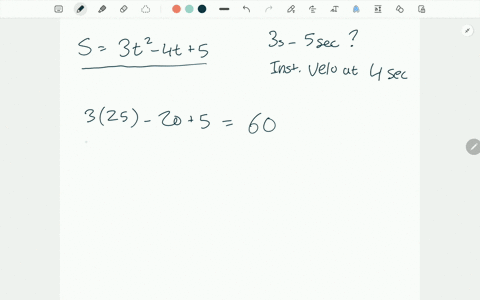 S = 3t² - 4t + 5
3s - 5 sec ?
Inst. Velo at 4 sec
3(25) - 20 + 5 = 60